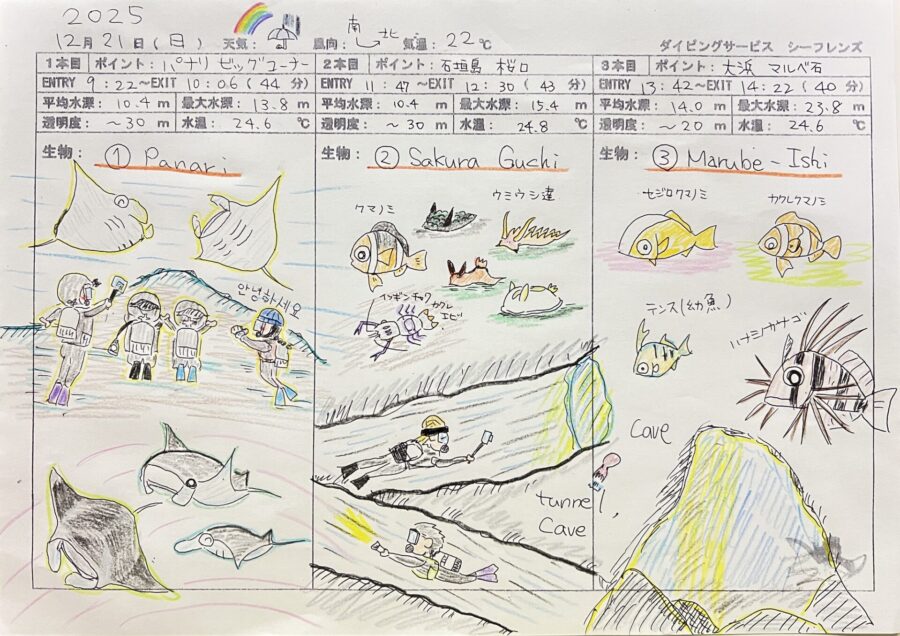 2025
12月 21日 (日) 天気: 風向: 南 北 気温: 22℃ ダイビングサービス シーフレンズ
1本目 ポイント: パナリ ビッグコーナー
ENTRY 9:22～EXIT 10:06 (44 分)
平均水深: 10.4 m 最大水深: 13.8 m
透明度: ~30 m 水温: 24.6 ℃
生物: ① Panari
안녕하세요
2本目 ポイント: 石垣島 桜口
ENTRY 11:47～EXIT 12:30 (43 分)
平均水深: 10.4 m 最大水深: 15.4 m
透明度: ~30 m 水温: 24.8 ℃
生物: ② Sakura Guchi
クマノミ
ウミウシ達
イソギンチャク
カクレ
エビ
tunnel,
Cave
3本目 ポイント: 大浜 マルベ石
ENTRY 13:42～EXIT 14:22 (40 分)
平均水深: 14.0 m 最大水深: 23.8 m
透明度: ~20 m 水温: 24.6 ℃
生物: ③ Marube-Ishi
セジロクマノミ
カクレクマノミ
テンス(幼魚)
ハナミノカサゴ
Cave